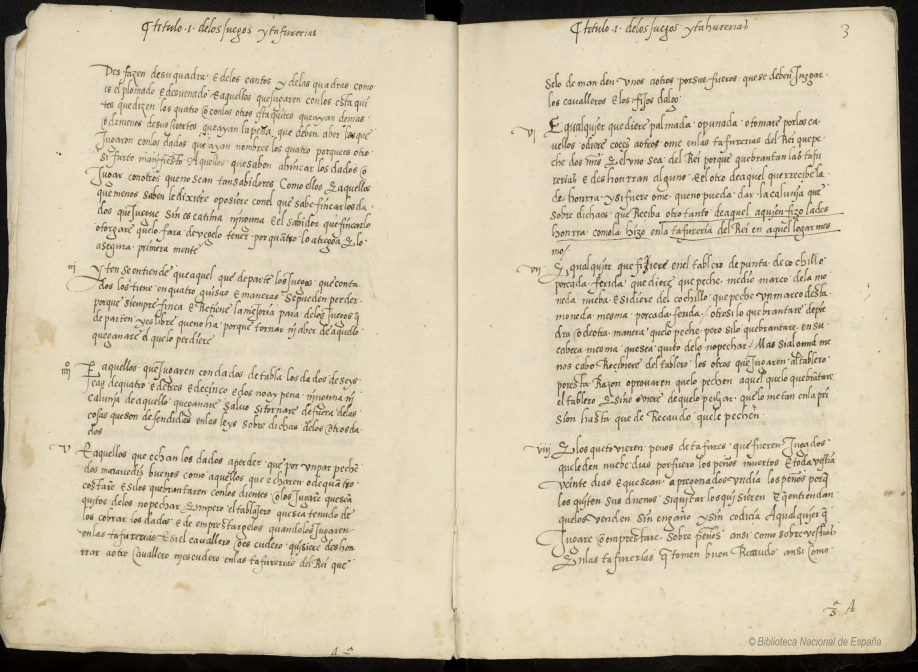 ¶ titulo .1. delos Juegos ytafurerias
Des fazen desu quadra E delos cantos y delas quadras como
es el plomado E desvenado E aquellos que juoaren conlos esta qui
tes que dizen los quatro o conlos otros q̃ taquites que ayan demas
o demenos de sus suertes que ayan la pena que deben aber los que
Juoaren conlos dados que ayan nombres los quatro por que es otro
si furto manifiesto Aquellos que saben afincar los dados o
Jugar con otros que no sean tan sabidores Como ellos E aquellos
que menos saben le dixere o posiere con el que sabe fincar los da
dos que Juegue sin escatima ninona E el sabidor que fincarlo
otorgare quelo fara devegelo tener por quanto lo atregoa E lo
asegura primera mente
iij Yten se entiende que aquel que departe los Juegos que conta
dos los tiene en quatro guisas E maneras Se pueden perder
porque siempre finca E Retiene la mejoria para delos Juegos q̃
departen yes libre que no ha porque tornar nj aber de aquello
que ganare el que lo perdiere
iiijº E aquellos que Juoaren con dados de tabla los dados de seys
E cas de quatro E de tres E de cinco E dos no ay pena ninona nj
calunja de aquello que ganare Salvo si tornare de fuera delas
cosas que son defendidas enlas leys sobre dichas delos otros da
dos
v E aquellos que echan los dados aperder que por vn par peche
dos maravedis buenos como aquellos que echaren o de quatro
costare E si los quebrantaren conlos dientes o los Jugare que sea
quitos delos no pechar Empero el tablajero que sea tenudo de
los cobrar los dados E de emprestargelos quando los Jugaren
enlas tafurerias E si el cavallero o escudero quisiere deshon
rrar a otro Cavallero nj escudero enlas tafurerias del Rei que
¶ titulo .1. delos Juegos ytahurerias
3
selo demanden vnos aotros por sus fueros que se deben Juzgar
los cavalleros E los fijos dalgo
vj E qualqujer que diere palmada o punada o tomare por los ca
vellos o diere coçes aotros ome enlas tafurerias del Rei que pe
che dos mrs̃ El vno sea del Rei porque quebrantan las tafu
rerias E deshonrran alguno E el otro de aquel que rrecibe la
deshonrra ysi fuere ome que no pueda dar la calunja que
sobre dicha es que Reciba otro tanto de aquel aquien fizo la des
honrra como la hizo enla tafureria del Rei en aquel logar mes
mo/.
vij E qualqujer que firiere en el tablero de punta de cochillo
por cada ferida que diere que peche medio marco dela mo
neda nueba E si diere del cochillo que peche vn marco desta
moneda mesma por cada ferida / otrosi lo quebrantare de pie
dra o de otra manera quelo peche pero silo quebrantare en su
cabeça mesma que sea quito delo no pechar / Mas si al ome me
nos cabo Recibiere del tablero los otros que Juoaren al tablero
por esta Razon o provaren quelo pechen aquel quelo quebrãtare
el tablero E si no oviere de quelo pechar quelo metan enla pri
sion hasta que de Recaudo quelo pechen
viij E los que tovieren penos de tafures que fueren Jugados
que le den nuebe dias por fuero los penos muertos E toda vgilia
veinte dias E que sean apregonados vn dia los penos porq̃
los quiten sus duenos si quitar los quisieren E que entiendan
quelos venden sin engaño ysin codicia Aqualqujer q̃
Jugare o emprestare sobre penos ansi como sobre vestias
E enlas tafurerias q̃ tomen buen Recaudo ansi Como
A
© Biblioteca Nacional de España